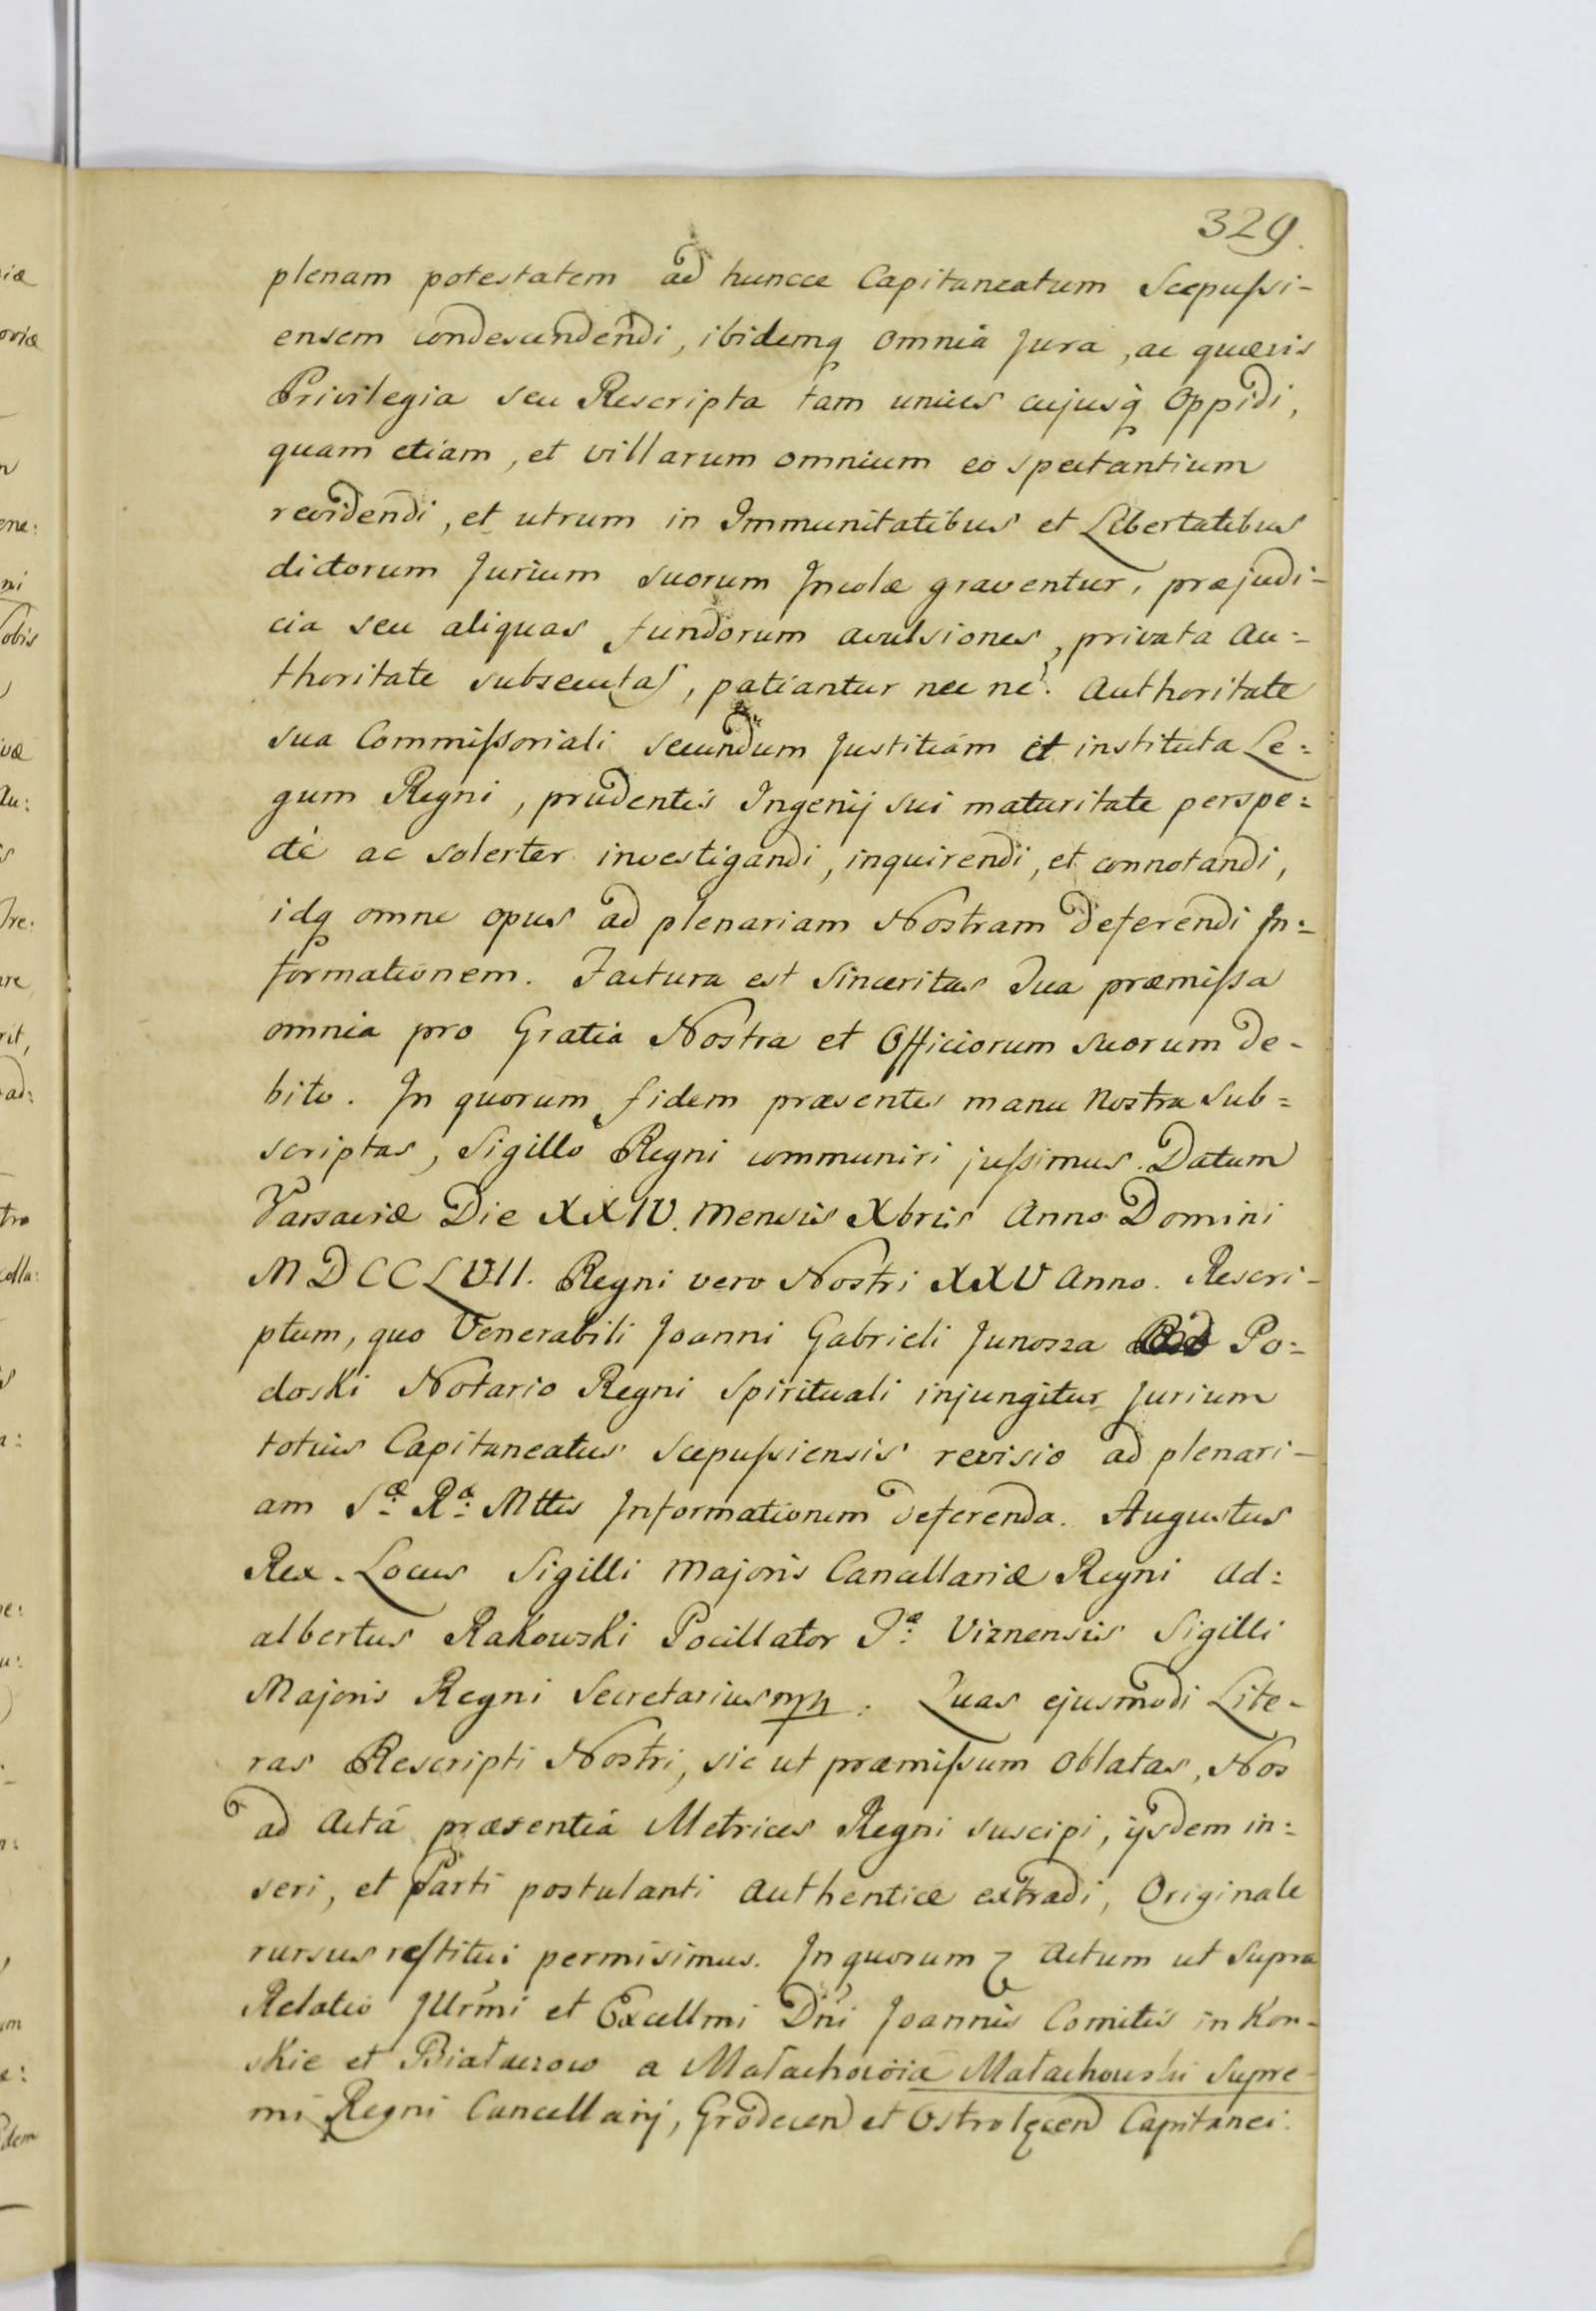 329.
plenam potestatem ad huncce Capitaneatum Scepussi-
ensem condescendendi, ibidemq omnia Jura, ac quævis
Privilegia seu Rescripta tam unius cujusq Oppidi,
quam etiam, et villarum omnium eo spectantium
revidendi, et utrum in Immunitatibus et Libertatibus
dictorum Jurium suorum Incolæ graventur, præjudi-
cia seu aliquas fundorum avulsiones, privata au=
thoritate subsecutas, patiantur nec nè? Authoritate
sua Commissoriali secundum Justitiam et instituta Le=
gum Regni, prudentis Ingenij sui maturitate perspe=
ctè ac solerter investigandi, inquirendi, et connotandi,
idq omne opus ad plenariam Nostram deferendi In=
formationem. Factura est Sinceritas Sua præmissa
omnia pro Gratia Nostra et Officiorum suorum de-
bito. In quorum fidem præsentes manu Nostra Sub=
scriptas, Sigillo Regni communiri jussimus. Datum
Varsaviæ Die XXIV. mensis Xbris Anno Domini
MDCCLVII. Regni vero Nostri XXV Anno. Rescri-
ptum, quo Venerabili Joanni Gabrieli Junosza Po=
doski Notario Regni Spirituali injungitur Jurium
totius Capitaneatus Scepussiensis revisio ad plenari-
am Sæ Ræ Mttis Informationem deferenda. Augustus
Rex. Locus Sigilli Majoris Cancellariæ Regni Ad=
albertus Rakowski Pocillator Tæ Viznensis Sigilli
Majoris Regni Secretarius mp. Quas ejusmodi Lite-
ras Rescripti Nostri, sic ut præmissum oblatas, Nos
ad Acta præsentia Metrices Regni suscipi, ijsdem in=
seri, et Parti postulanti authentice extradi, Originale
rursus restitui permisimus. In quorum Actum ut Supra
Relatio Illrmi et Excellmi Dni Joannis Comitis in Kon-
skie et Białaczow a Małachowice Małachowski Supre-
mi Regni Cancellarij, Grodecen et Ostrolęcen Capitanei.